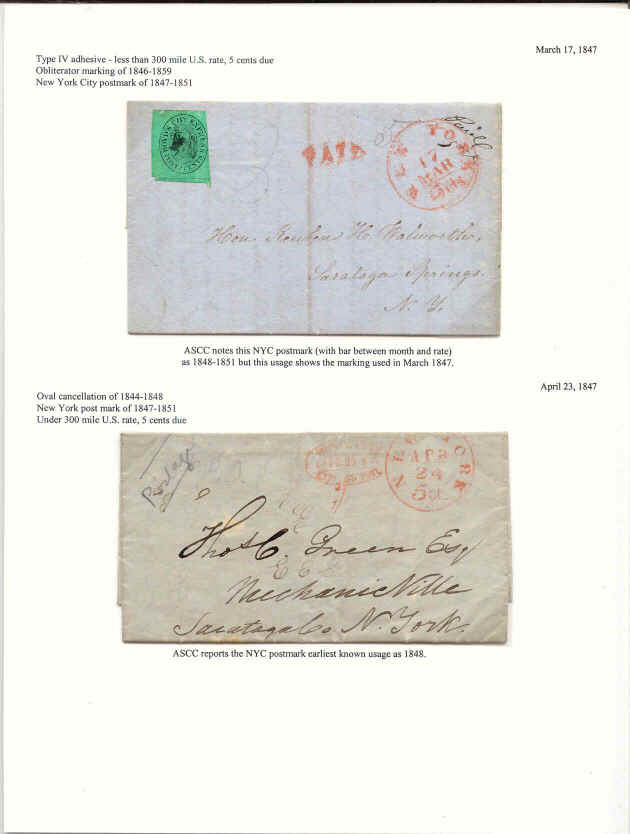 March 17, 1847
Type IV adhesive - less than 300 mile U.S. rate, 5 cents due
Obliterator marking of 1846-1859
New York City postmark of 1847-1851
PAID
NEW YORK
17
MAR
Hon. Reuben H. Walworth,
Saratoga Springs
N. Y.
ASCC notes this NYC postmark (with bar between month and rate)
as 1848-1851 but this usage shows the marking used in March 1847.
April 23, 1847
Oval cancellation of 1844-1848
New York post mark of 1847-1851
Under 300 mile U.S. rate, 5 cents due
Postage
NEW YORK
APR
24
Thos C. Green Esq
MechanicVille
Saratoga Co N. York
ASCC reports the NYC postmark earliest known usage as 1848.